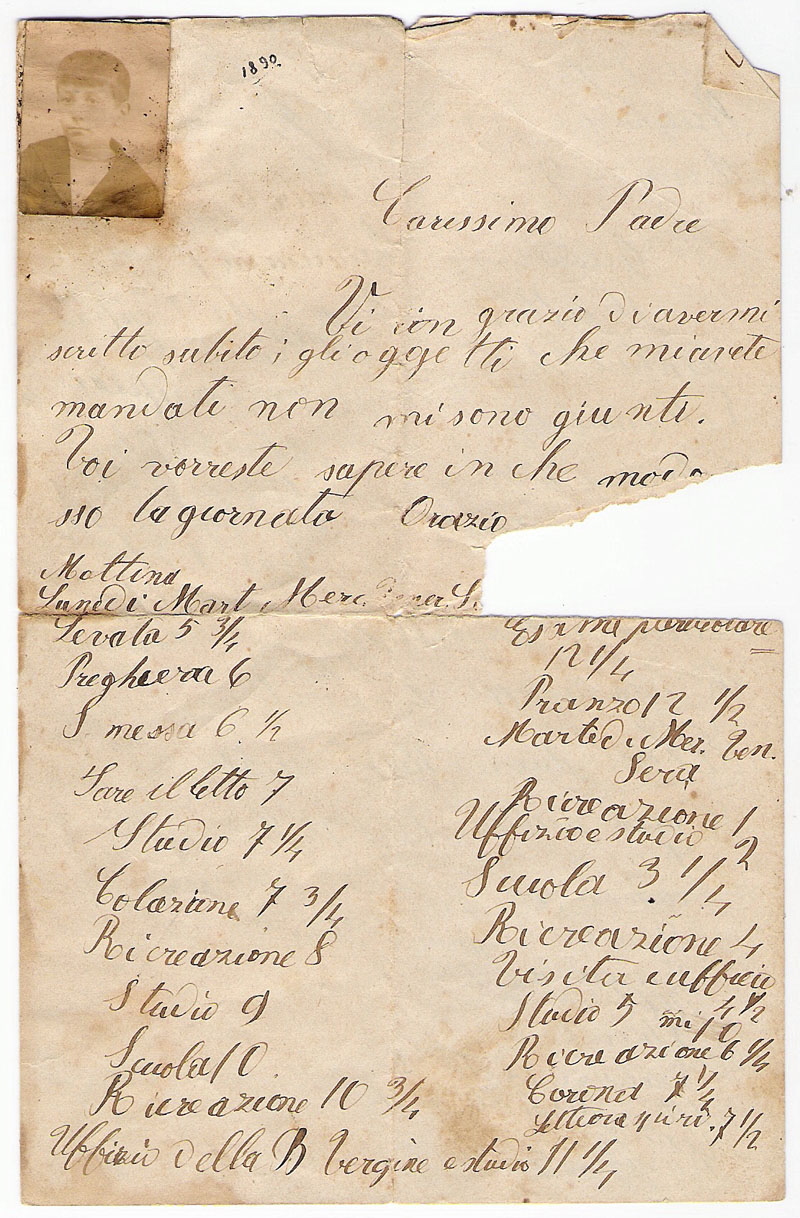 1890
Carissimo Padre
Vi rin grazio di avermi
scritto subito; gli oggetti che mi avete
mandati non mi sono giunti.
Voi vorreste sapere in che modo
sso la giornata Orazio
Mattina
Lunedi Mart. Merc.
Levata 5 3/4
Preghiera 6
S. messa 6 1/2
Fare il letto 7
Studio 7 1/4
Colazione 7 3/4
Ricreazione 8
Studio 9
Scuola 10
Ricreazione 10 3/4
Uffizio della B Vergine e studio 11 1/4
Esame particolare
12 1/4
Pranzo 12 1/2
Martedi Mer. Ven.
Sera
Ricreazione 1
Uffizio e studio 2
Scuola 3 1/4
Ricreazione 4
Visita e ufficio
4 1/2
Studio 5 mi 10
Ricreazione 6 1/4
Corona 7 1/4
7 1/2